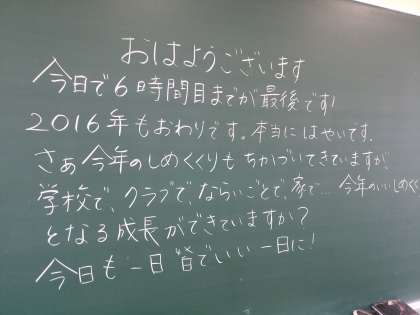 おはようございます
今日で6時間目までが最後です!
2016年もおわりです。本当にはやいです.
さぁ今年のしめくくりもちかづいてきていますが、
学校で、クラブで、ならいごとで、家で…今年のいいしめく
となる成長ができていますか?
今日も一日皆でいい一日に!